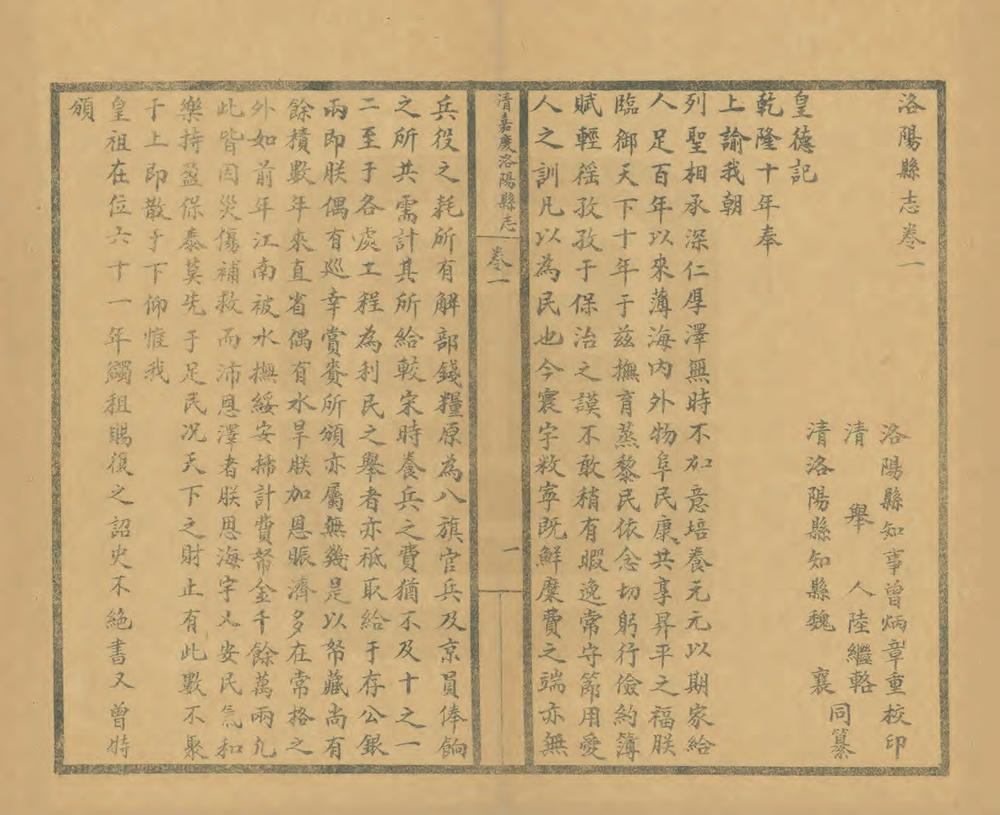 洛陽縣志卷一
洛陽縣知事曾炳章重校印
清舉人陸繼輅
清洛陽縣知縣魏襄同纂
皇德記
乾隆十年奉
上諭我朝
列聖相承深仁厚澤無時不加意培養元元以期家給
人足百年以來薄海內外物阜民康共享昇平之福朕
臨御天下十年于茲撫育蒸黎民依念切躬行儉約簿
賦輕徭孜孜于保治之謨不敢稍有暇逸常守節用愛
人之訓凡以為民也今寰宇敉寧既鮮糜費之端亦無
清嘉慶洛陽縣志
卷一
一
兵役之耗所有解部錢糧原為八旗官兵及京員俸餉
之所共需計其所給較宋時養兵之費猶不及十之一
二至于各處工程為利民之舉者亦祗取給于存公銀
兩即朕偶有巡幸賞賚所頒亦屬無幾是以帑藏尚有
餘積數年來直省偶有水旱朕加恩賑濟多在常格之
外如前年江南被水撫綏安插計費帑金千餘萬兩凡
此皆因災傷補救而沛恩澤者朕思海宇乂安民氣和
樂持盈保泰莫先于足民况天下之財止有此數不聚
于上即散于下仰惟我
皇祖在位六十一年蠲租賜復之詔史不絕書又曾特
頒